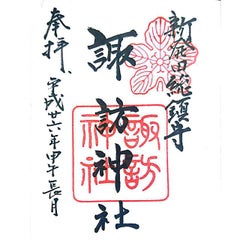 新発田総鎮守
諏訪神社
諏訪
神社
奉拝、
平成廿六年甲午長月